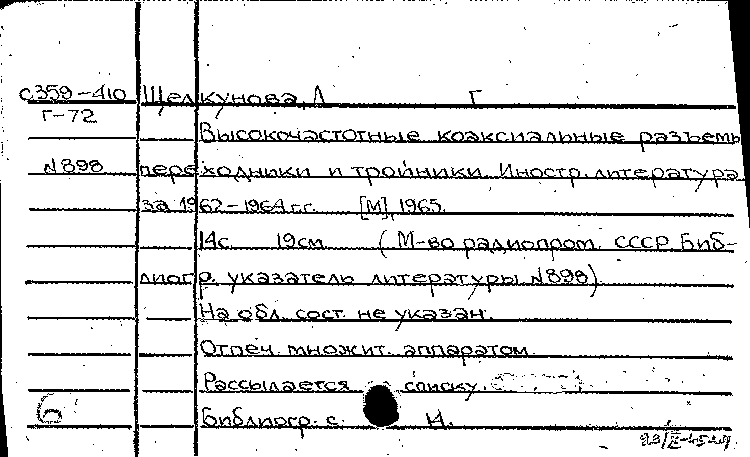 с359-410 Щелкунова, Л Г
Г-72
Высокочастотные коаксиальные разъемы
№898 переходники и тройники. Иностр. литература
за 1962-1964 г.г. [М], 1965.
14с. 19см (М-во радиопром. СССР. Биб-
лиогр. указатель литературы №898)
На обл. сост. не указан.
Отпеч. множит. аппаратом.
Рассылается списку.
6 Библиогр. с. 14.